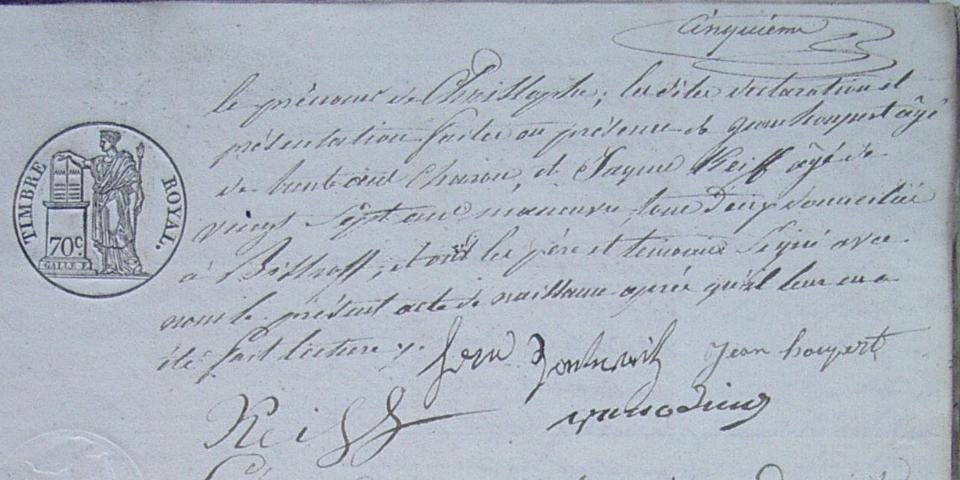 Cinquième
le prénom de Christophe; les dites déclaration et
présentation faites en présence de Jean houpert âgé
de trente ans Charon, et Jaque Reiff âgé de
vingt sept ans manœuvre tous deux domiciliés
à Bistroff, et ont les père et témoins signé avec
nous le présent acte de naissance après qu'il leur en a
été fait lecture
TIMBRE ROYAL.
70c
Jean houpert
Reiff